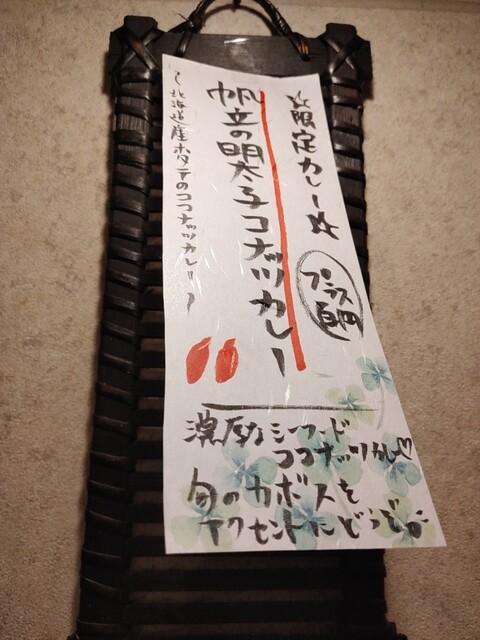 ☆限定カレー☆
帆立の明太子ココナッツカレー
プラス百円
〜北海道産ホタテのココナッツカレー〜
濃厚なシーフード
ココナッツカレー♡
旬のカボスを
アクセントにどうぞ